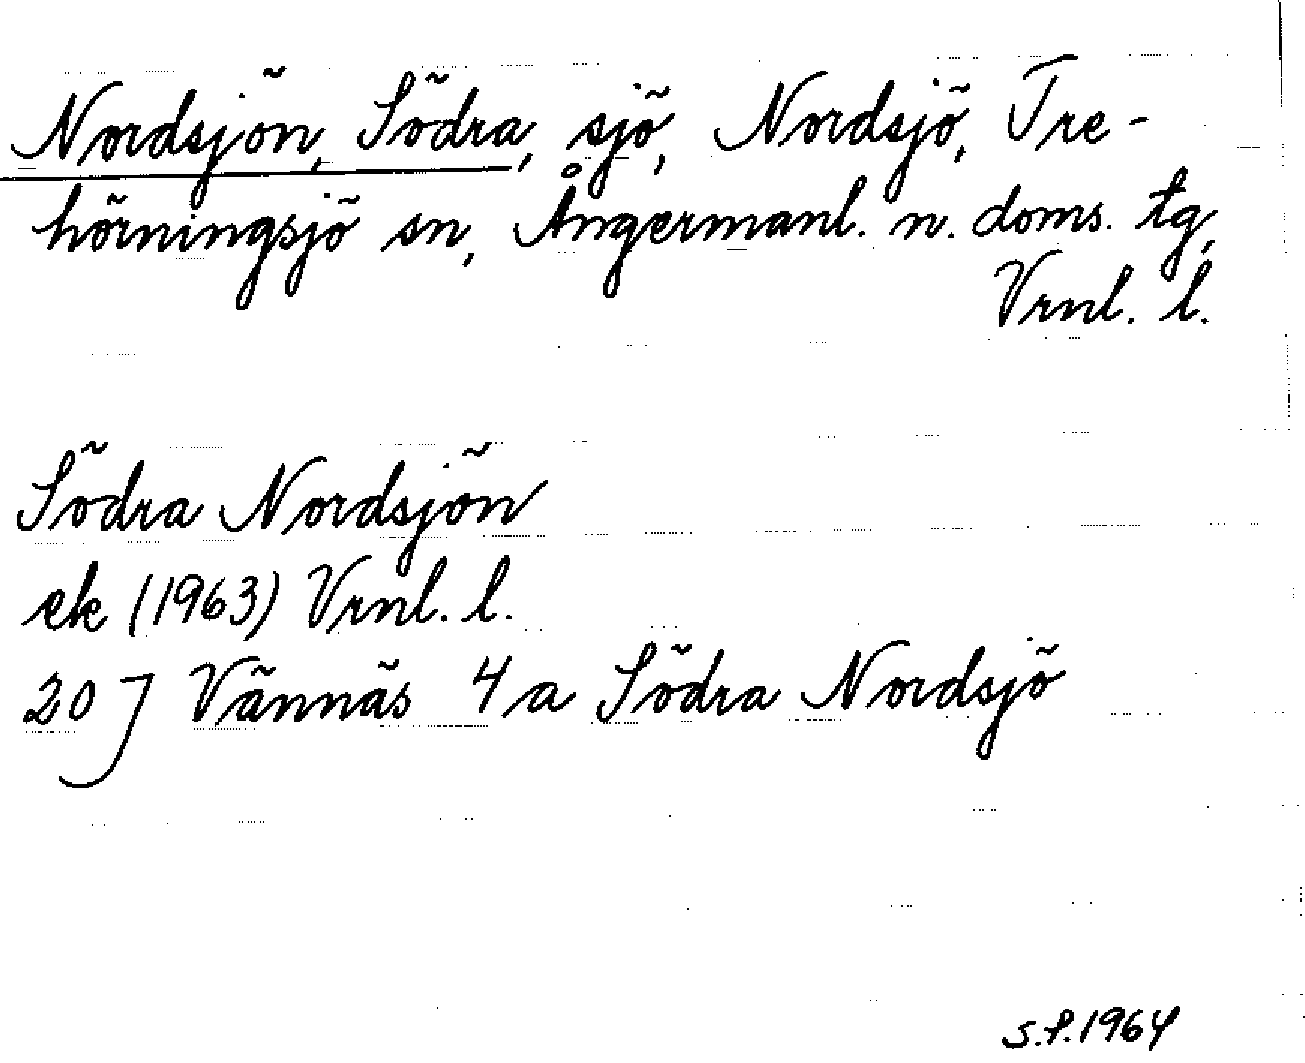 Nordsjön, Södra, sjö, Nordsjö, Tre-
hörningsjö sn, Ångermanl. n. doms. tg,
Vrnl. l.
Södra Nordsjön
ek (1963) Vrnl. l.
20 J Vännäs 4a Södra Nordsjö
S.P. 1964